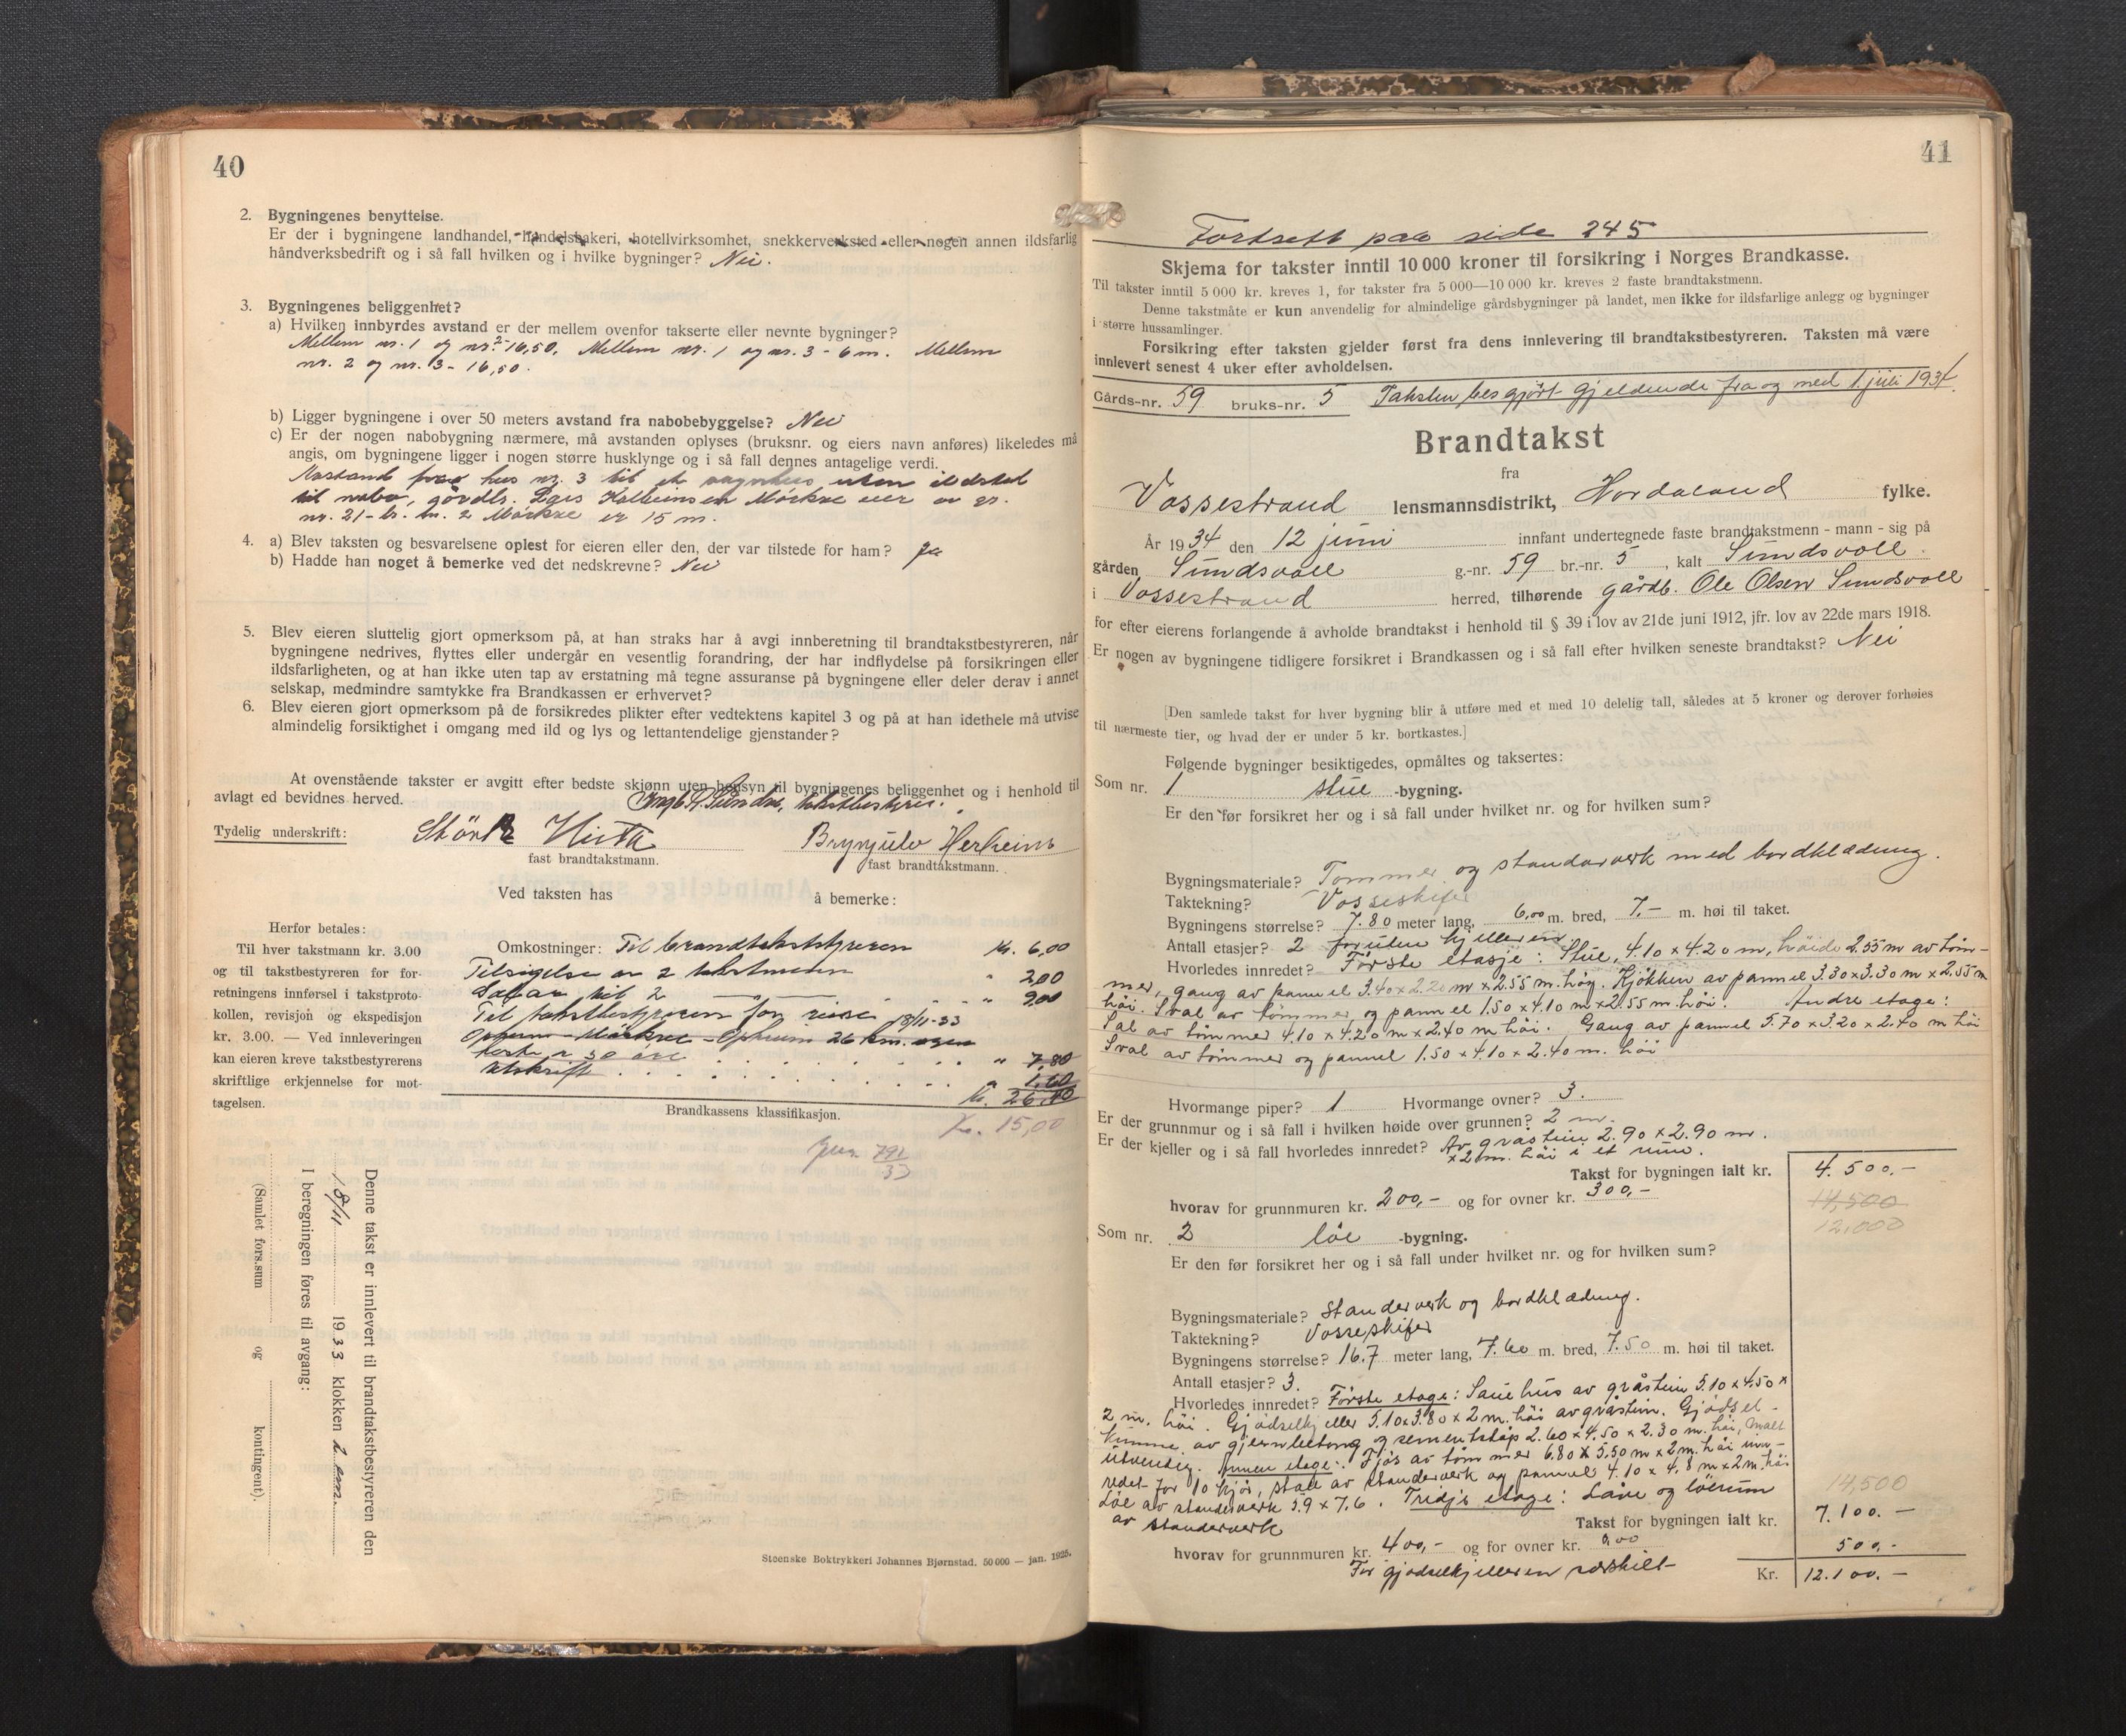 40
2. Bygningenes benyttelse.
Er der i bygningene landhandel, handelsbakeri, hotellvirksomhet, snekkerverksted eller nogen annen ildsfarlig
håndverksbedrift og i så fall hvilken og i hvilke bygninger? Nei.
3. Bygningenes beliggenhet?
a) Hvilken innbyrdes avstand er der mellem ovenfor takserte eller nevnte bygninger?
Mellem nr. 1 og nr. 2 - 16,50. Mellem nr. 1 og nr. 3 - 6 m. Mellem
nr. 2 og nr. 3 - 16,50.
b) Ligger bygningene i over 50 meters avstand fra nabobebyggelse? Nei
c) Er der nogen nabobygning nærmere, må avstanden oplyses (bruksnr. og eiers navn anføres) likeledes må
angis, om bygningene ligger i nogen større husklynge og i så fall dennes antagelige verdi.
Avstand fraa hus nr. 3 til et vognhus uten ildsted
til nabo, gårdbr. Lars Mørkve eier av gr.
nr. 21 - br. nr. 2 Mørkve er 15 m.
4. a) Blev taksten og besvarelsene oplest for eieren eller den, der var tilstede for ham? Ja
b) Hadde han noget å bemerke ved det nedskrevne? Nei
5. Blev eieren sluttelig gjort opmerksom på, at han straks har å avgi innberetning til brandtakstbestyreren, når
bygningene nedrives, flyttes eller undergår en vesentlig forandring, der har indflydelse på forsikringen eller
ildsfarligheten, og at han ikke uten tap av erstatning må tegne assuranse på bygningene eller deler derav i annet
selskap, medmindre samtykke fra Brandkassen er erhvervet?
6. Blev eieren gjort opmerksom på de forsikredes plikter efter vedtektens kapitel 3 og på at han idethele må utvise
almindelig forsiktighet i omgang med ild og lys og lettantendelige gjenstander?
At ovenstående takster er avgitt efter bedste skjønn uten hensyn til bygningenes beliggenhet og i henhold til
avlagt ed bevidnes herved. takstbestyrer.
Tydelig underskrift: Brynjulv Herheim
fast brandtakstmann. fast brandtakstmann.
Ved taksten has å bemerke:
Herfor betales:
Til hver takstmann kr. 3.00
og til takstbestyreren for for-
retningens innførsel i takstproto-
kollen, revisjon og ekspedisjon
kr. 3.00. — Ved innleveringen
kan eieren kreve takstbestyrerens
skriftlige erkjennelse for mot-
tagelsen.
Omkostninger: Til brandtakststyreren kr. 6,00
Tilsigelse av 2 takstmenn " 2,00
til 2 " 9,00
Til takstbestyreren for reise 18/11-33
Opheim - Mørkve - Opheim 26 km. egen
à 30 øre " 7,80
Utskrift 1,60
kr. 26,40
Brandkassens klassifikasjon.
kr. 15,00
Jnr. 791/33
Denne takst er innlevert til brandtakstbestyreren den
18/11 1933 klokken 2 em.
I beregningen føres til avgang:
(Samlet fors.sum og kontingent).
Steenske Boktrykkeri Johannes Bjørnstad. 50 000 — jan. 1925.
41
Fortsett paa side 245
Skjema for takster inntil 10 000 kroner til forsikring i Norges Brandkasse.
Til takster inntil 5 000 kr. kreves 1, for takster fra 5 000—10 000 kr. kreves 2 faste brandtakstmenn.
Denne takstmåte er kun anvendelig for almindelige gårdsbygninger på landet, men ikke for ildsfarlige anlegg og bygninger
i større hussamlinger.
Forsikring efter taksten gjelder først fra dens innlevering til brandtakstbestyreren. Taksten må være
innlevert senest 4 uker efter avholdelsen.
Gårds-nr. 59 bruks-nr. 5 Taksten bes gjort gjeldende fra og med 1 juli 1934.
Brandtakst
fra
Vossestrand lensmannsdistrikt, Hordaland fylke.
År 1934 den 12 juni innfant undertegnede faste brandtakstmenn - mann - sig på
gården Sundsvoll g.-nr. 59 br.-nr. 5, kalt Sundsvoll.
i Vossestrand herred, tilhørende gårdb. Ole Olsen Sundsvoll
for efter eierens forlangende å avholde brandtakst i henhold til § 39 i lov av 21de juni 1912, jfr. lov av 22de mars 1918.
Er nogen av bygningene tidligere forsikret i Brandkassen og i så fall efter hvilken seneste brandtakst? Nei
[Den samlede takst for hver bygning blir å utføre med et med 10 delelig tall, således at 5 kroner og derover forhøies
til nærmeste tier, og hvad der er under 5 kr. bortkastes.]
Følgende bygninger besiktigedes, opmåltes og taksertes:
Som nr. 1 stue -bygning.
Er den før forsikret her og i så fall under hvilket nr. og for hvilken sum?
Bygningsmateriale? Tømmer og standarverk med bordklædning.
Taktekning? Vosseskifer
Bygningens størrelse? 7.80 meter lang, 6,00 m. bred, 7,- m. høi til taket.
Antall etasjer? 2 foruten kjelleren
Hvorledes innredet? Første etasje: Stue, 4.10 x 4.20 m, høide 2.55 m av tøm-
mer, gang av pannel 3.40 x 2.20 m x 2.55 m. høy. Kjøkken av pannel 3.30 x 3.30 m x 2.55 m
høi. Sval av tømmer og pannel 1.50 x 4.10 m x 2.55 m. høi. Andre etage:
Sal av tømmer 4.10 x 4.20 m x 2.40 m høi. Gang av pannel 5.70 x 3.20 x 2.40 m høi
Sval av tømmer og pannel 1.50 x 4.10 x 2.40 m. høi
Hvormange piper? 1 Hvormange ovner? 3.
Er der grunnmur og i så fall i hvilken høide over grunnen? 2 m.
Er der kjeller og i så fall hvorledes innredet? Av gråstein 2.90 x 2.90 m.
x 2 m. høi i et rum.
Takst for bygningen ialt kr. 4.500.-
hvorav for grunnmuren kr. 200,- og for ovner kr. 300,-
14,500
12,000
Som nr. 2 løe -bygning.
Er den før forsikret her og i så fall under hvilket nr. og for hvilken sum?
Bygningsmateriale? Standerverk og bordklædning.
Taktekning? Vosseskifer
Bygningens størrelse? 16.7 meter lang, 7.60 m. bred, 7.50 m. høi til taket.
Antall etasjer? 3.
Hvorledes innredet? Første etage: Sauehus av gråstein 5.10 x 4.50 x
2 m. høi. Gjødselkjeller 5.10 x 3.80 x 2 m. høi av gråstein. Gjødsel-
kumme av gjernbetong og sementstøp 2.60 x 4.50 x 2.30 m. høi, malt
utvendig. Annen etage: Fjøs av tømmer 6.80 x 5.50 m x 2 m. høi inn-
redet for 10 kjør, stall av standerverk og pannel 4.10 x 4.8 m x 2 m. høi
Løe av standerverk 5.9 x 7.6. Tridje etage: Låve og løerum
av standerverk
14,500
Takst for bygningen ialt kr. 7.100.-
hvorav for grunnmuren kr. 400,- og for ovner kr. 0,00
For gjødselkjelleren særskilt 500.-
Kr. 12.100.-